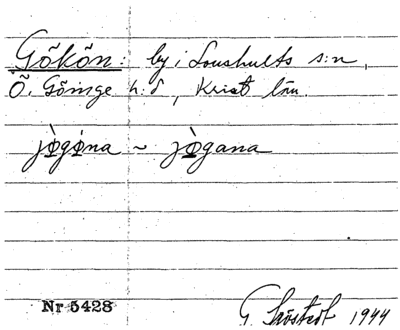 Gökön: by i Loushults s:n,
Ö. Göinge h:d, Krist län.
jògóna ~ jògana
Nr 5428
G 1944